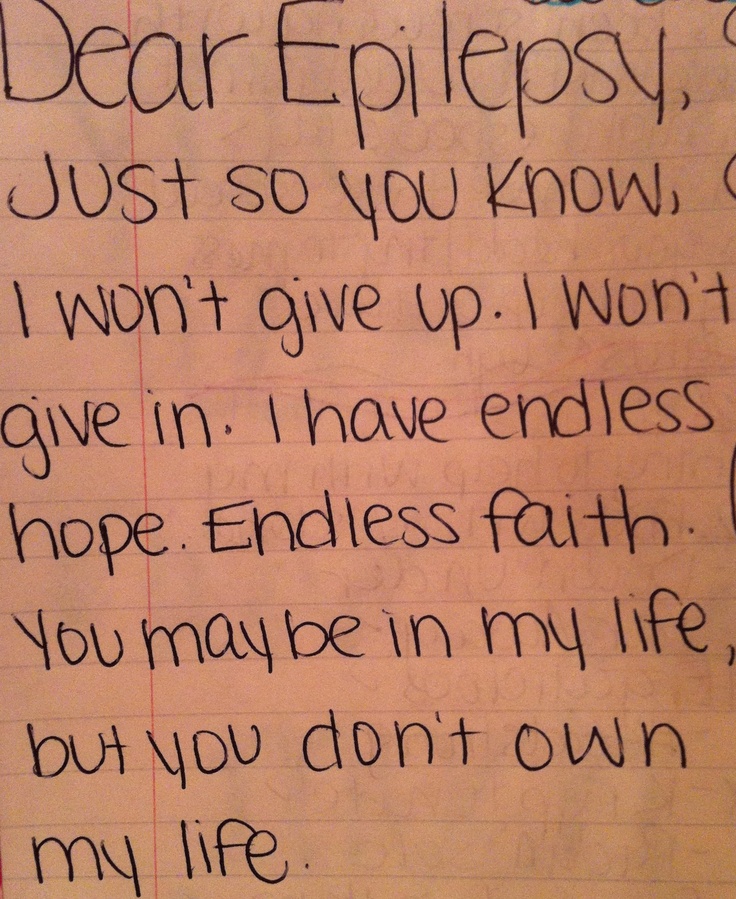 Dear Epilepsy,
Just so you know,
I won't give up. I won't
give in. I have endless
hope. Endless faith.
You may be in my life,
but you don't own
my life.